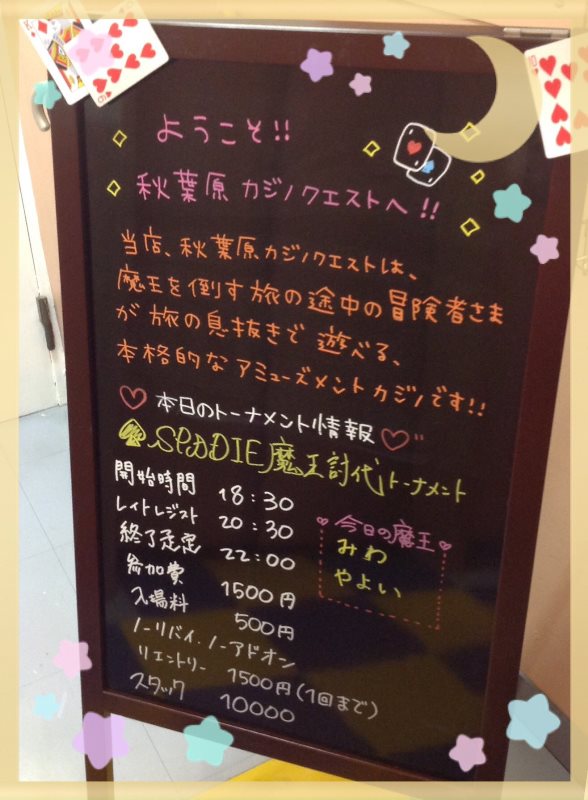 ようこそ!!
秋葉原 カジノクエストへ!!
当店、秋葉原カジノクエストは、
魔王を倒す旅の途中の冒険者さま
が旅の息抜きで遊べる、
本格的なアミューズメントカジノです!!
本日のトーナメント情報
SPADIE魔王討伐トーナメント
開始時間 18:30
レイトレジスト 20:30
終了予定 22:00
参加費 1500円
入場料 500円
ノーリバイ・ノーアドオン
リエントリー 1500円(1回まで)
スタック 10000
今日の魔王
みわ
やよい